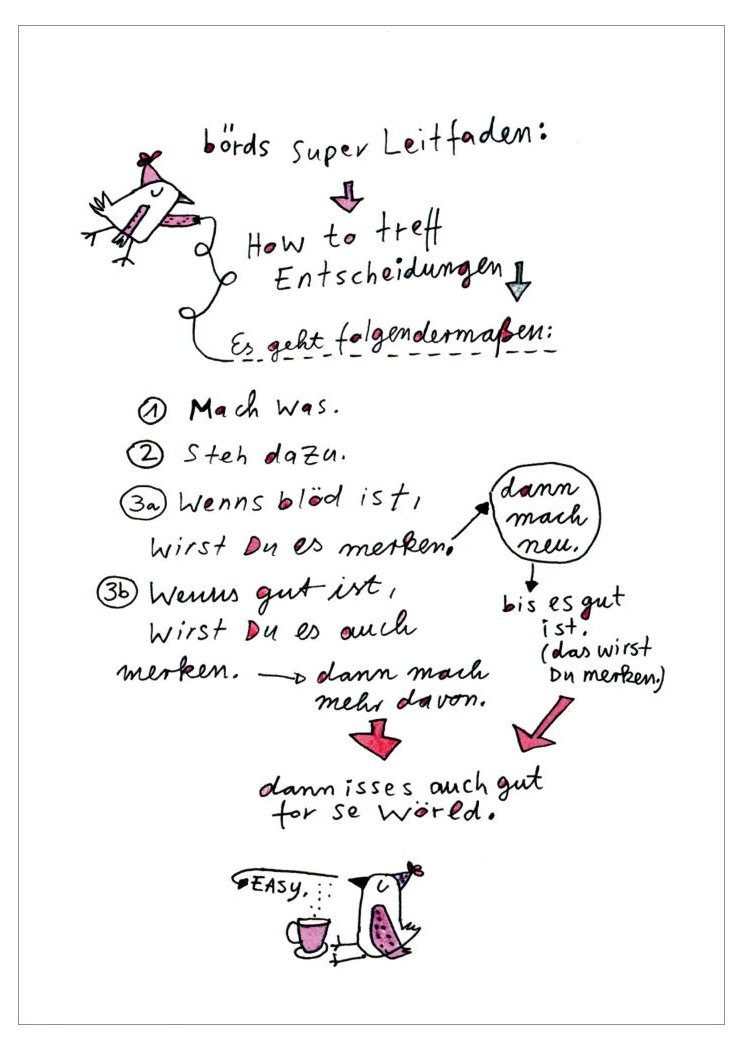 börds super Leitfaden:
How to treff
Entscheidungen
Es geht folgendermaßen:
1 Mach was.
2 Steh dazu.
3a Wenns blöd ist,
wirst Du es merken.
dann
mach
neu.
bis es gut
ist.
(das wirst
Du merken.)
3b Wenns gut ist,
wirst Du es auch
merken.
dann mach
mehr davon.
dann isses auch gut
for se wörld.
EASY.